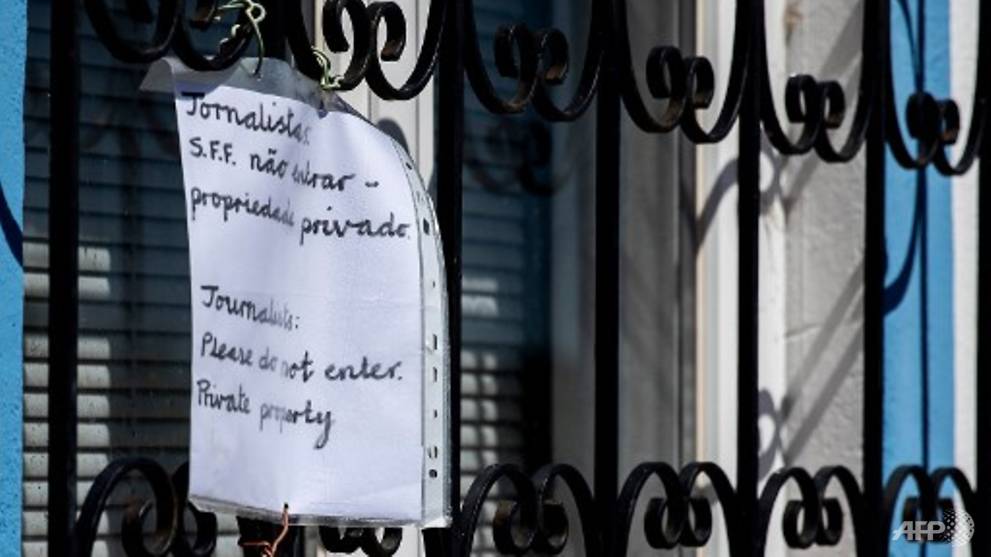 Jornalistas:
S.F.F. não entrar -
propriedade privado.
Journalists:
Please do not enter.
Private property
AFP